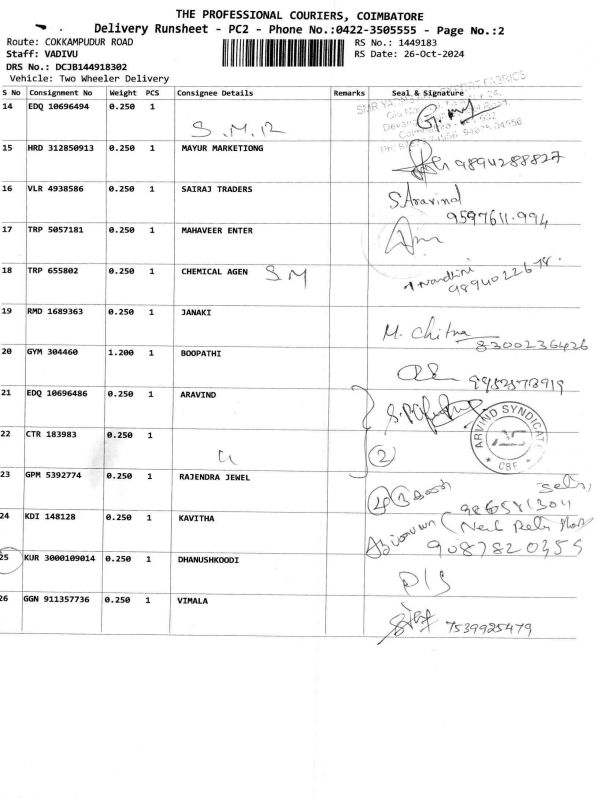 THE PROFESSIONAL COURIERS, COIMBATORE
Delivery Runsheet - PC2 - Phone No.:0422-3505555 - Page No.:2
Route: COKKAMPUDUR ROAD RS No.: 1449183
Staff: VADIVU RS Date: 26-Oct-2024
DRS No.: DCJB144918302
Vehicle: Two Wheeler Delivery
S No Consignment No Weight PCS Consignee Details Remarks Seal & Signature
14 EDQ 10696494 0.250 1 S.M.R
15 HRD 312850913 0.250 1 MAYUR MARKETIONG 9894288827
16 VLR 4938586 0.250 1 SAIRAJ TRADERS S.Aravind
9597611994
17 TRP 5057181 0.250 1 MAHAVEER ENTER
18 TRP 655802 0.250 1 CHEMICAL AGEN S M Nandhini
9894022678.
19 RMD 1689363 0.250 1 JANAKI M. Chitra
8300236426
20 GYM 304460 1.200 1 BOOPATHI
21 EDQ 10696486 0.250 1 ARAVIND
ARVIND SYNDICATE
CBE
22 CTR 183983 0.250 1 2
23 GPM 5392774 0.250 1 RAJENDRA JEWEL
24 KDI 148128 0.250 1 KAVITHA
9087820355
25 KUR 3000109014 0.250 1 DHANUSHKOODI P/S
26 GGN 911357736 0.250 1 VIMALA 7539925479